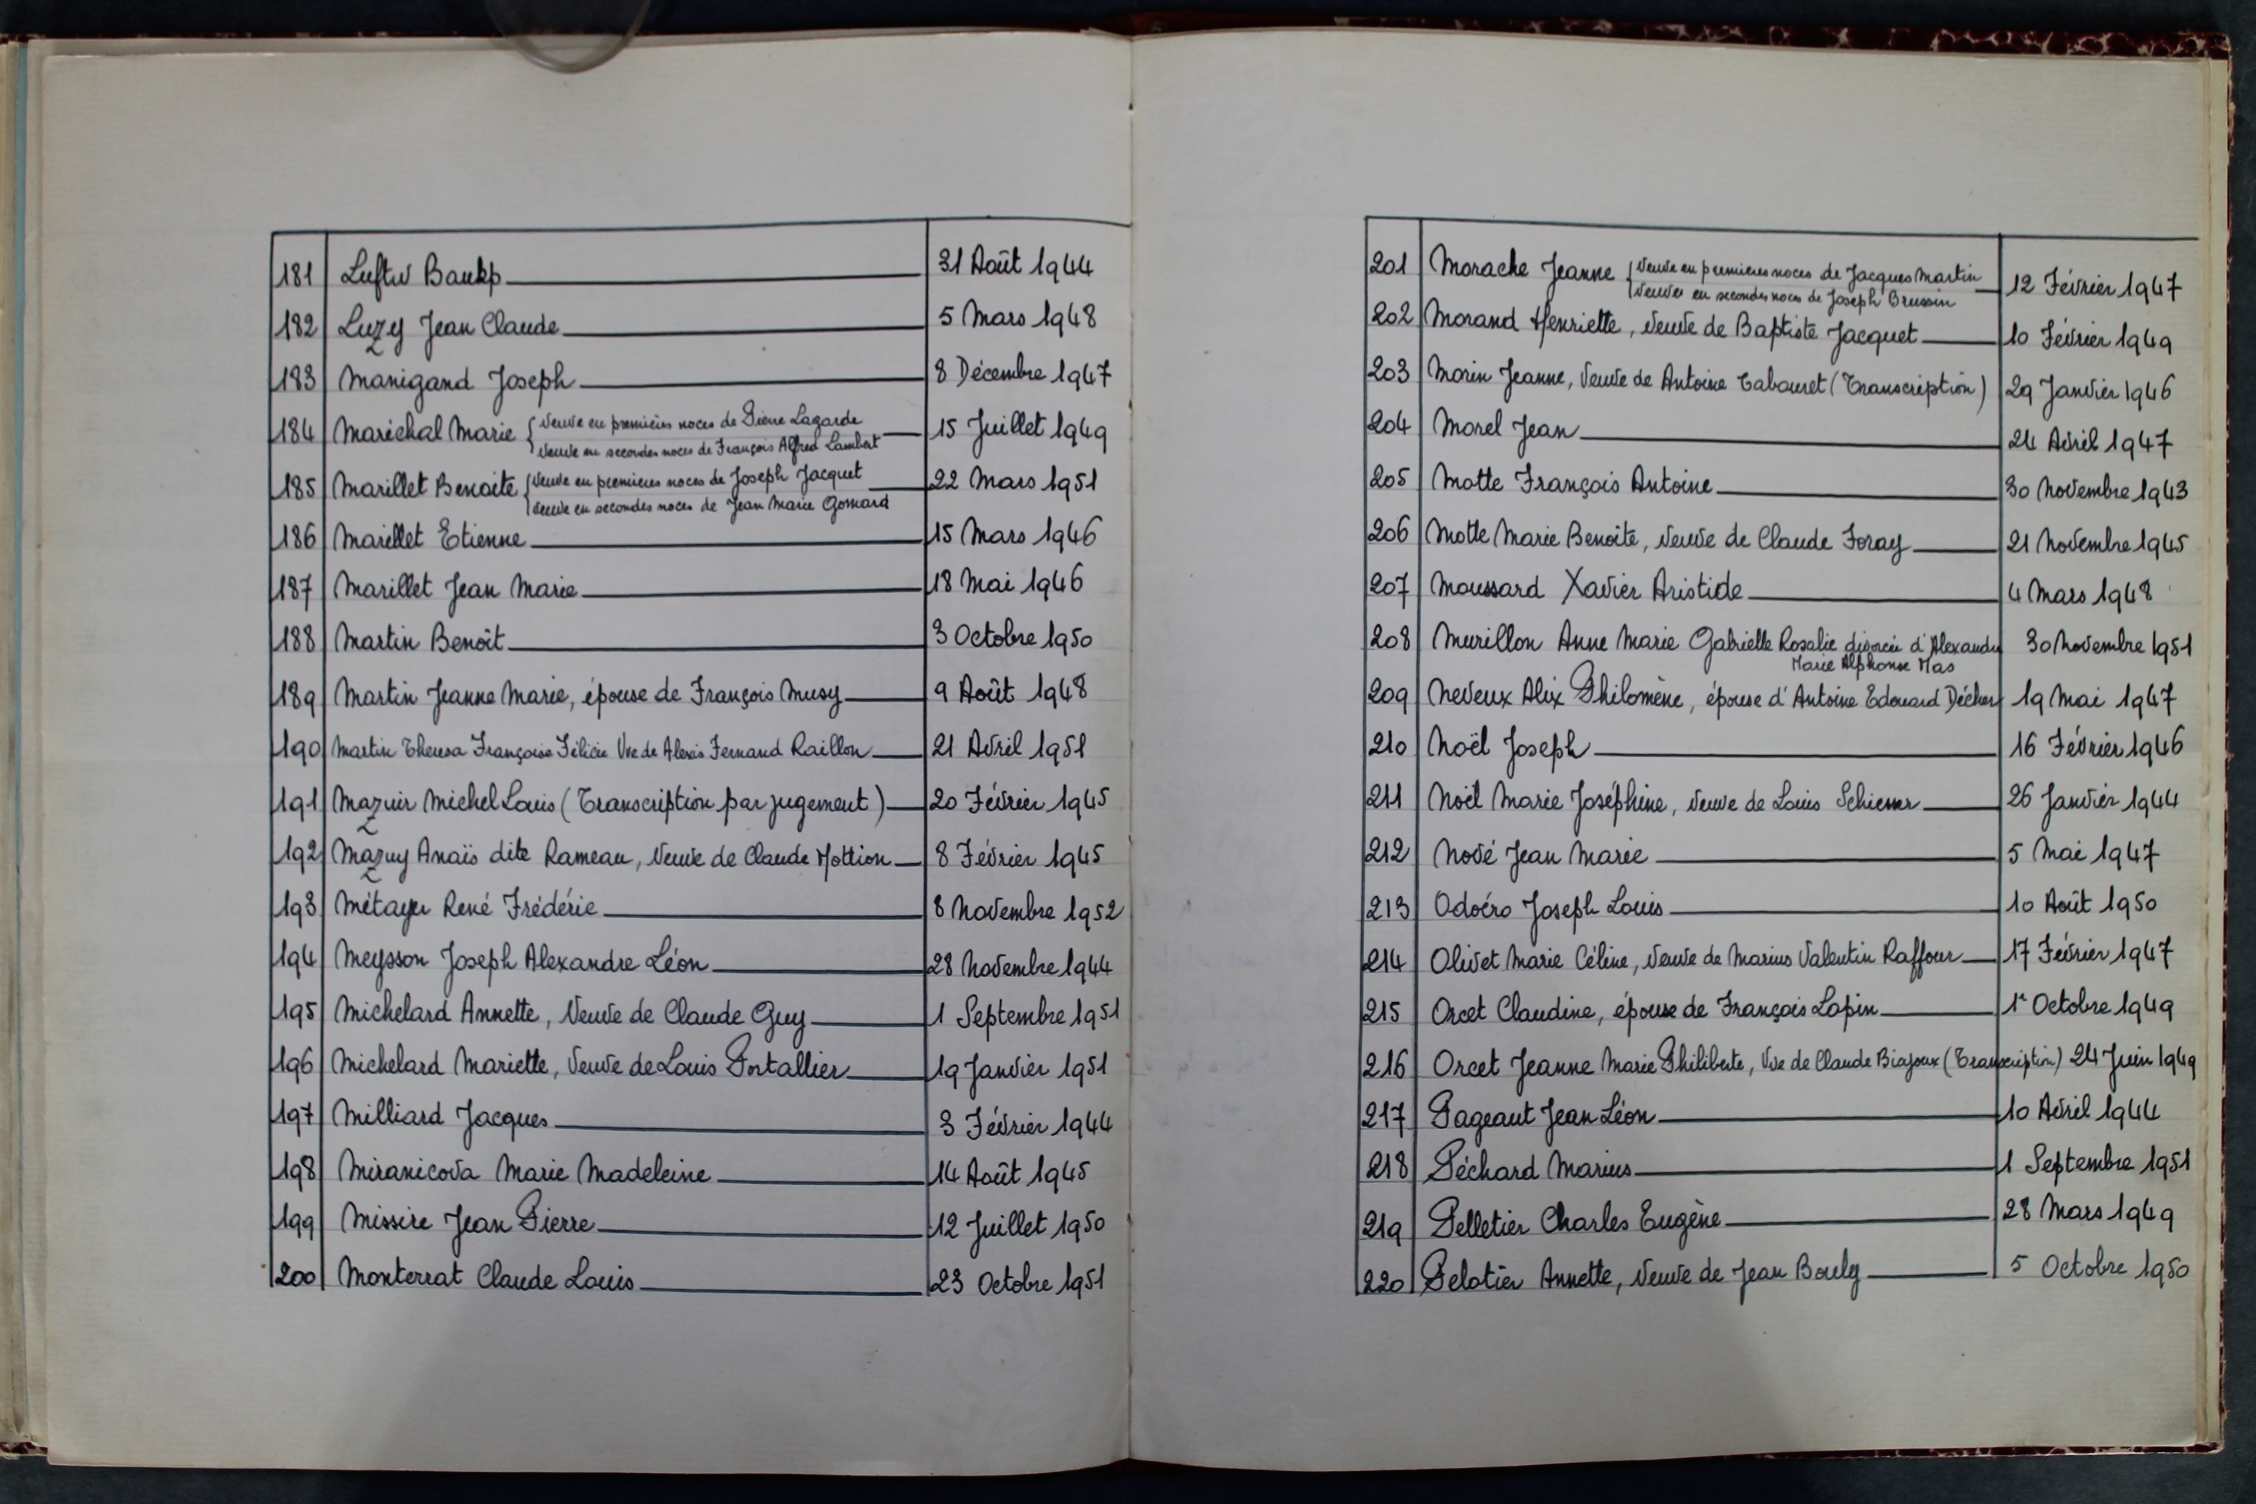 181 Luftw Baukp 31 Août 1944
182 Luzy Jean Claude 5 Mars 1948
183 Manigand Joseph 8 Décembre 1947
184 Maréchal Marie { Veuve en premières noces de Pierre Lagarde 15 Juillet 1949
Veuve en secondes noces de François Alfred Lambert
185 Marillet Benoite { Veuve en premières noces de Joseph Jacquet 22 Mars 1951
Veuve en secondes noces de Jean Marie Gomard
186 Marillet Etienne 15 Mars 1946
187 Marillet Jean Marie 18 Mai 1946
188 Martin Benoît 3 Octobre 1950
189 Martin Jeanne Marie, épouse de François Musy 9 Août 1948
190 Martin Theresa Françoise Félicie Vve de Alexis Fernand Raillon 21 Avril 1951
191 Mazuir Michel Louis (Transcription par jugement) 20 Février 1945
192 Mazuy Anaïs dite Rameau, Veuve de Claude Mottion 8 Février 1945
193 Métayer René Frédéric 8 Novembre 1952
194 Meysson Joseph Alexandre Léon 28 Novembre 1944
195 Michelard Annette, Veuve de Claude Guy 1 Septembre 1951
196 Michelard Mariette, Veuve de Louis Portallier 19 Janvier 1951
197 Milliard Jacques 3 Février 1944
198 Miranicova Marie Madeleine 14 Août 1945
199 Missire Jean Pierre 12 Juillet 1950
200 Monterrat Claude Louis 23 Octobre 1951
201 Morache Jeanne { Veuve en premières noces de Jacques Martin 12 Février 1947
Veuve en secondes noces de Joseph Brussin
202 Morand Henriette, Veuve de Baptiste Jacquet 10 Février 1949
203 Morin Jeanne, Veuve de Antoine Tabouret (Transcription) 29 Janvier 1946
204 Morel Jean 24 Avril 1947
205 Motte François Antoine 30 Novembre 1943
206 Motte Marie Benoîte, Veuve de Claude Foray 21 Novembre 1945
207 Moussard Xavier Aristide 4 Mars 1948
208 Murillon Anne Marie Gabrielle Rosalie divorcée d'Alexandre 30 Novembre 1951
Marie Alphonse Mas
209 Neveux Alix Philomène, épouse d'Antoine Edouard Décher 19 Mai 1947
210 Noël Joseph 16 Février 1946
211 Noël Marie Joséphine, Veuve de Louis 26 Janvier 1944
212 Nové Jean Marie 5 Mai 1947
213 Odoéro Joseph Louis 10 Août 1950
214 Olivet Marie Céline, Veuve de Marius Valentin Raffour 17 Février 1947
215 Orcet Claudine, épouse de François Lapin 1r Octobre 1949
216 Orcet Jeanne Marie Philiberte, Vve de Claude Biajoux (Transcription) 24 Juin 1949
217 Pageaut Jean Léon 10 Avril 1944
218 Péchard Marius 1 Septembre 1951
219 Pelletier Charles Eugène 28 Mars 1949
220 Pelotier Annette, Veuve de Jean Bouly 5 Octobre 1950